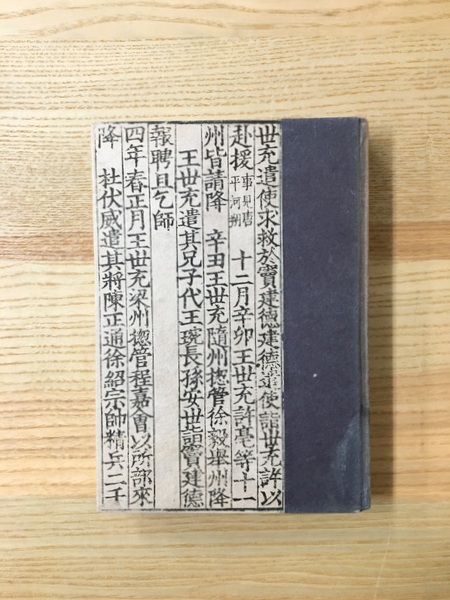 世充遣使求救於竇建德建德遣使詣世充許以
赴援事見唐平河朔　十二月辛卯王世充許亳等十一
州皆請降　辛丑王世充隨州揔管徐毅舉州降
王世充遣其兄子代王琬長孫安世詣竇建德
報聘且乞師
四年春正月王世充梁州揔管程嘉會以所部來
降　杜伏威遣其將陳正通徐紹宗帥精兵二千